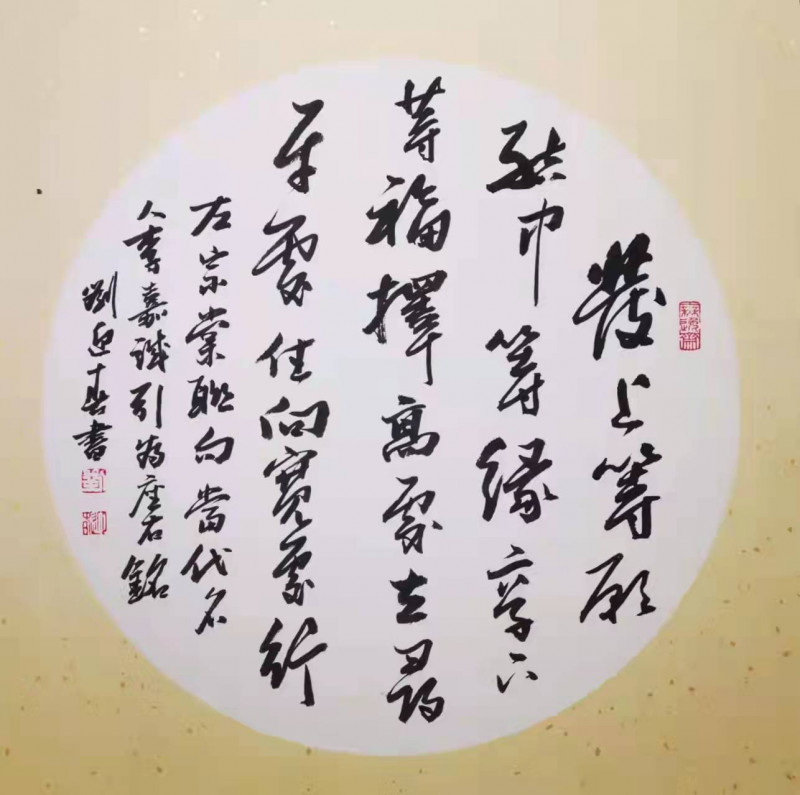 發上等願
結中等緣享下
等福擇高處立尋
平處住向寬處行
左宗棠聯句當代名
人李嘉誠引為座右銘
劉迎春書